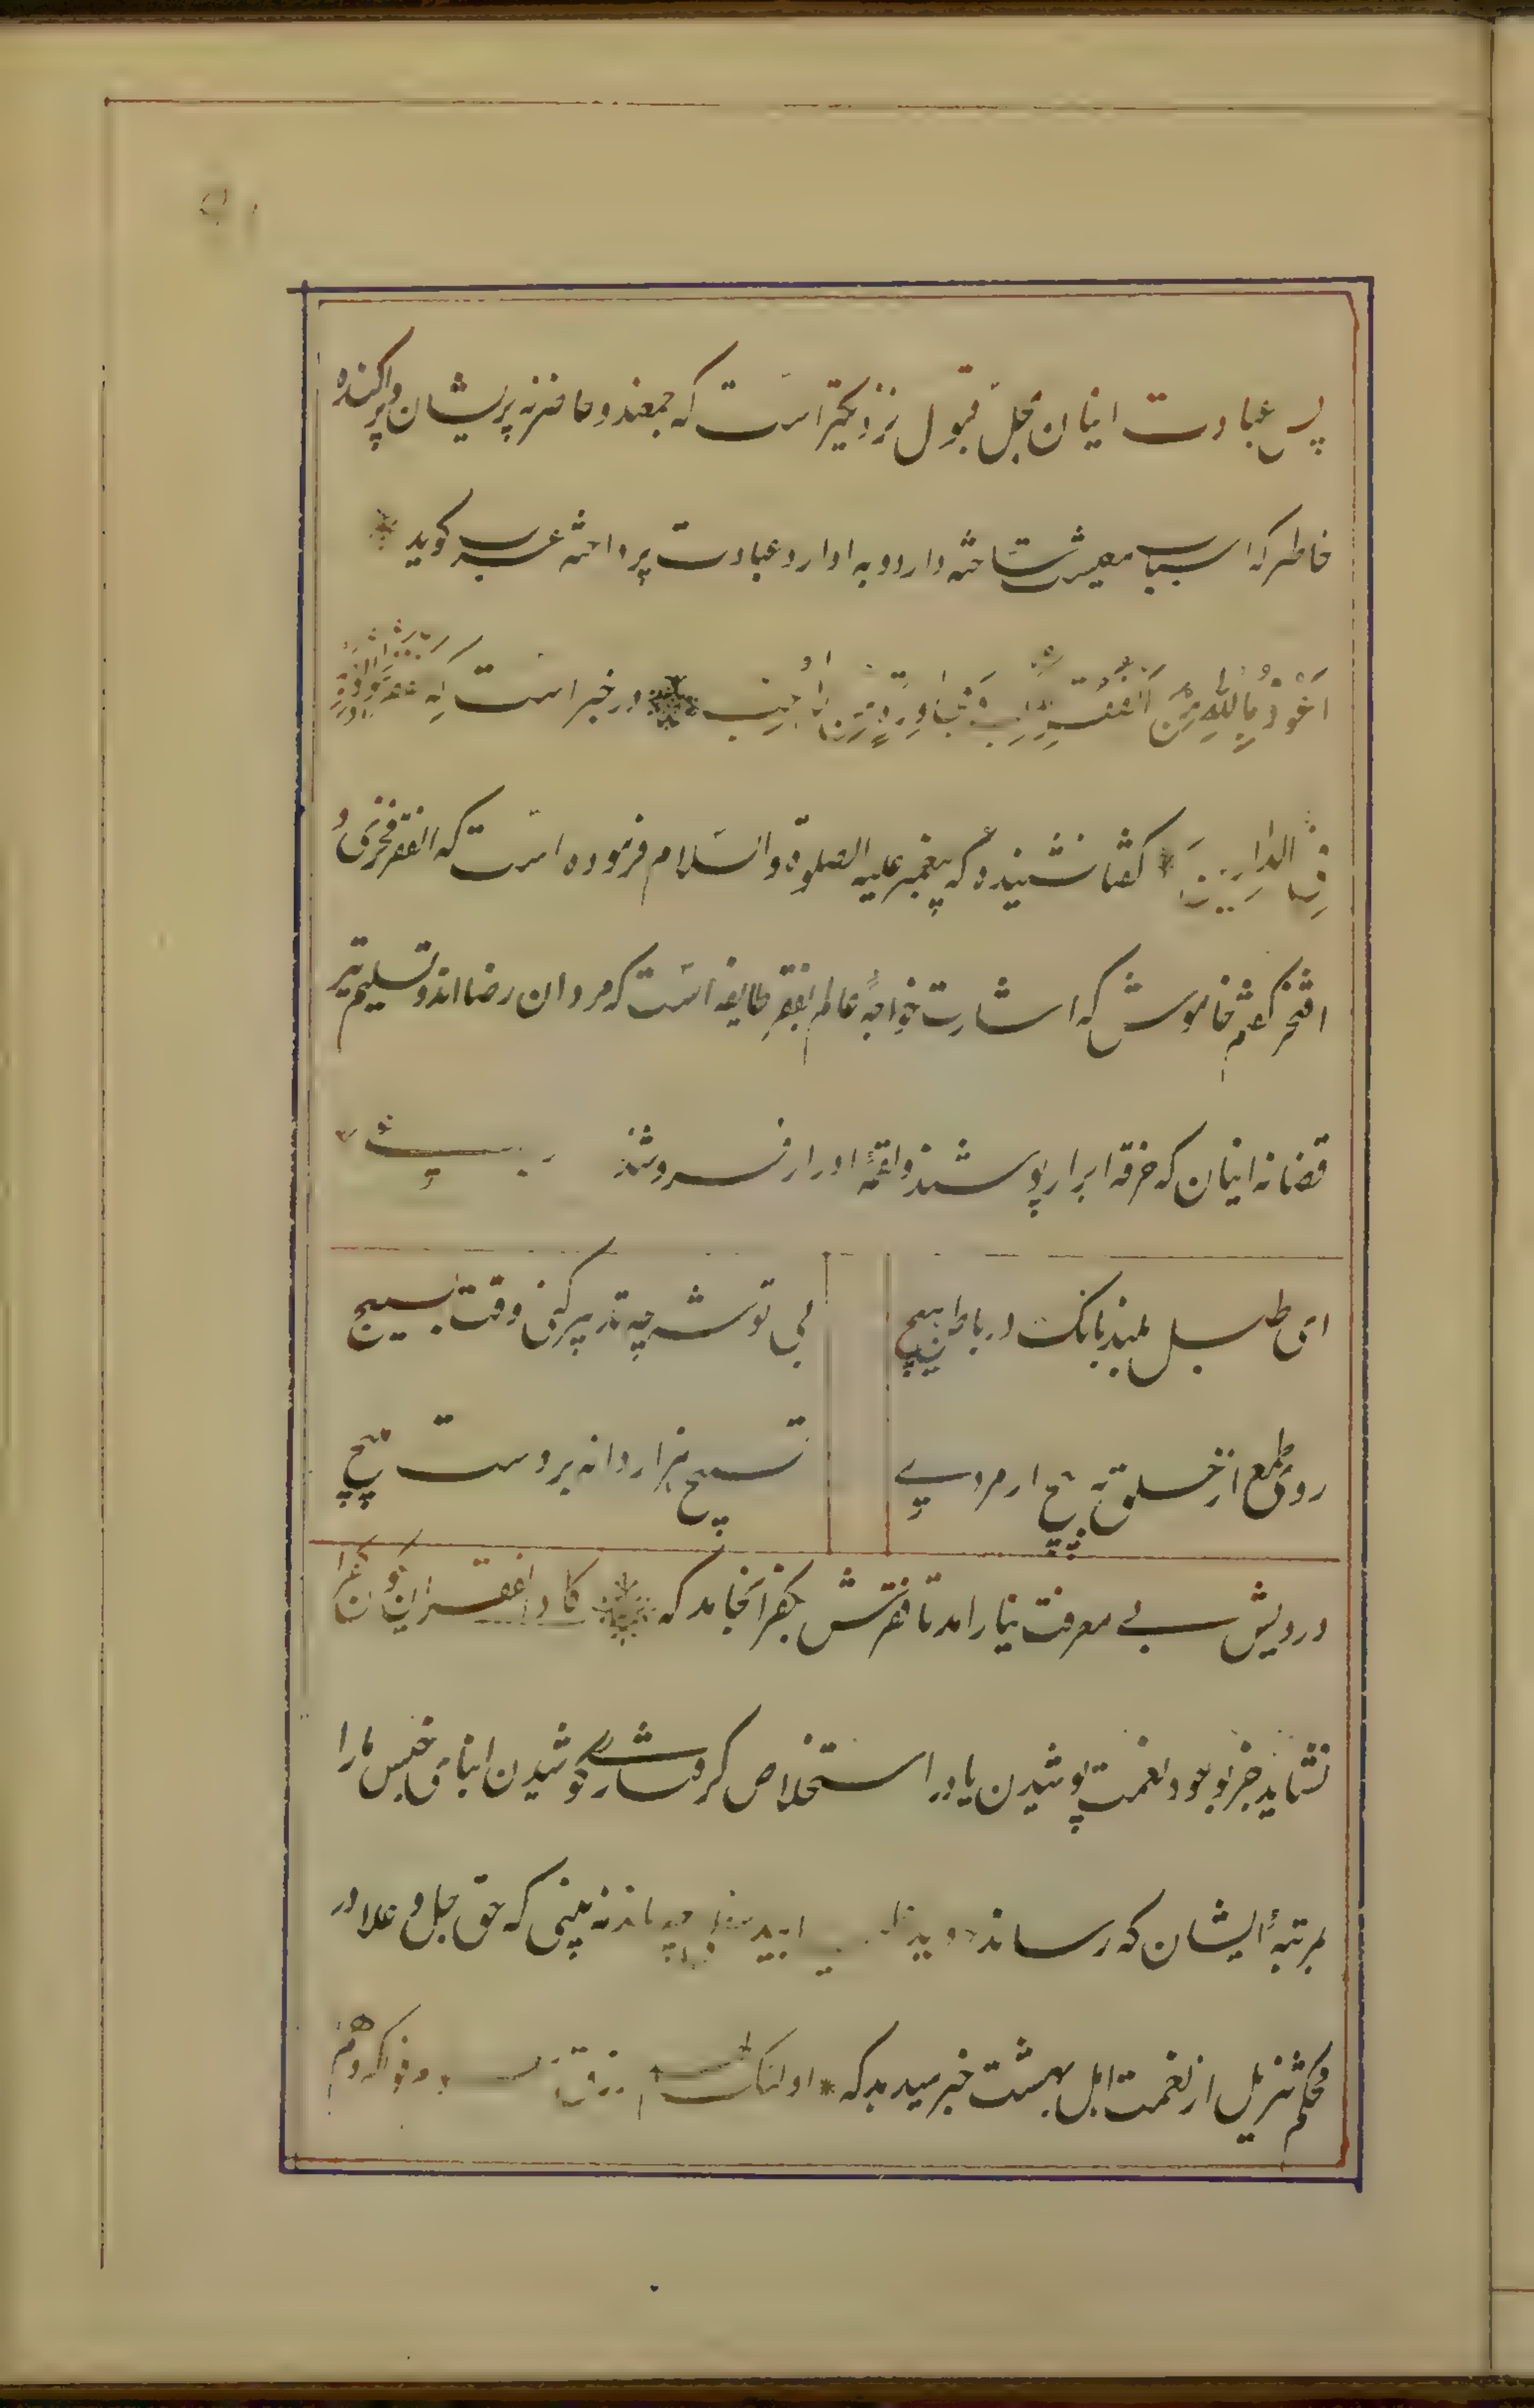 پس عبادت اینان بمحل قبول نزدیکتر است که جمعند و حاضر نه پریشان و پراکنده
خاطر که اسباب معیشت ساخته دارد و به اوراد عبادت پرداخته عرب کوید
اَعُوذُ بِاللّٰهِ مِنَ الْفَقْرِ در خبر است که
فی الدارین کفتا نشنیده که پیغمبر علیه الصلوة والسّلام فرموده است که الفقر فخری و
افتخر کفتم خاموش که اشارت خواجهٔ عالم بفقرِ طایفه است که مردان رضا اند و تسلیم تیر
قضا نه اینان که خرقه ابرار پوشند و لقمهٔ ادرار فروشند
ای طبل بلند بانک در باطن هیچ
بی توشه چه تدبیر کنی وقت بسیج
روی طمع از خلق به پیچ ار مردی
تسبیح هزار دانه بر دست مپیچ
درویش بی معرفت نیارامد تا فقرش بکفر انجامد که کاد الفقر ان
نشاید جز بوجود نعمت پوشیدن یا در استخلاص کوشیدن ابنای جنس ما را
بمرتبهٔ ایشان که رساند و ید چه ماند نه بینی که حق جل و علا در
محکم تنزیل از نعمت اهل بهشت خبر میدهد که اولئک لهم رزق فواکه و هم